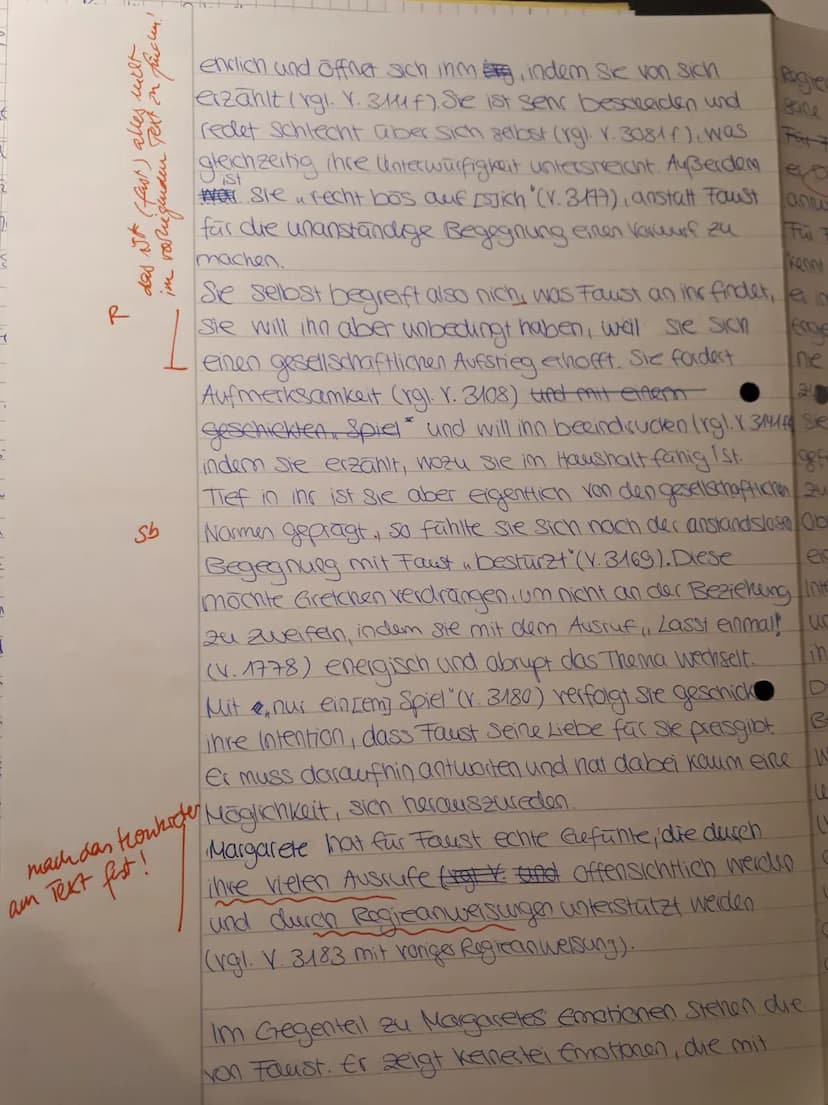 ehrlich und öffnet sich ihm, indem sie von sich
erzählt (vgl. V. 3111 f). Sie ist sehr bescheiden und
redet schlecht über sich selbst (vgl. V. 3081 f), was
gleichzeitig ihre Unterwürfigkeit unterstreicht. Außerdem
ist
sie „recht bös auf [s]ich" (V. 3177), anstatt Faust
für die unanständige Begegnung einen Vorwurf zu
machen.
Sie selbst begreift also nich, was Faust an ihr findet,
sie will ihn aber unbedingt haben, weil sie sich
einen gesellschaftlichen Aufstieg erhofft. Sie fordert
Aufmerksamkeit (vgl. V. 3108) und mit einem
geschickten „Spiel" und will ihn beeindrucken (vgl. V
indem sie erzählt, wozu sie im Haushalt fähig ist.
Tief in ihr ist sie aber eigentlich von den gesellschaftlichen
Normen geprägt, so fühlte sie sich nach der anstandslose
Begegnung mit Faust „bestürzt" (V. 3169). Diese
möchte Gretchen verdrängen, um nicht an der Beziehung
zu zweifeln, indem sie mit dem Ausruf „Lasst einmal!
(V. 1778) energisch und abrupt das Thema wechselt.
Mit „nur ein[em] Spiel" (V. 3180) verfolgt sie geschick
ihre Intention, dass Faust seine Liebe für sie preisgibt.
Er muss daraufhin antworten und hat dabei kaum eine
Möglichkeit, sich herauszureden.
Margarete hat für Faust echte Gefühle, die durch
ihre vielen Ausrufe und offensichtlich werden
und durch Regieanweisungen unterstützt werden
(vgl. V. 3183 mit voriger Regieanweisung).
Im Gegenteil zu Margaretes Emotionen stehen die
von Faust. Er zeigt keinerlei Emotionen, die mit
das ist (fast) alles nicht
im vorliegenden Text zu finden!
R
Sb
mach das konkreter
am Text fest!